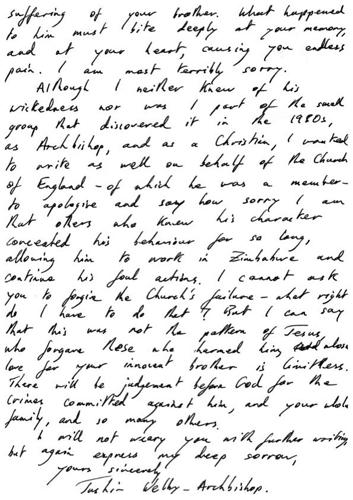 suffering of your brother. What happened
to him must bite deeply at your memory,
and at your heart, causing you endless
pain. I am most terribly sorry.
Although I neither knew of his
wickedness nor was I part of the small
group that discovered it in the 1980s,
as Archbishop, and as a Christian, I wanted
to write as well on behalf of the Church
of England – of which he was a member –
to apologise and say how sorry I am
that others who knew his character
concealed his behaviour for so long,
allowing him to work in Zimbabwe and
continue his foul actions. I cannot ask
you to forgive the Church's failure – what right
do I have to do that? But I can say
that this was not the pattern of Jesus,
who forgave those who harmed him whose
love for your innocent brother is limitless.
There will be judgement before God for the
crimes committed against him, and your whole
family, and so many others.
I will not weary you with further writing
but again express my deep sorrow,
yours sincerely
Justin Welby – Archbishop.